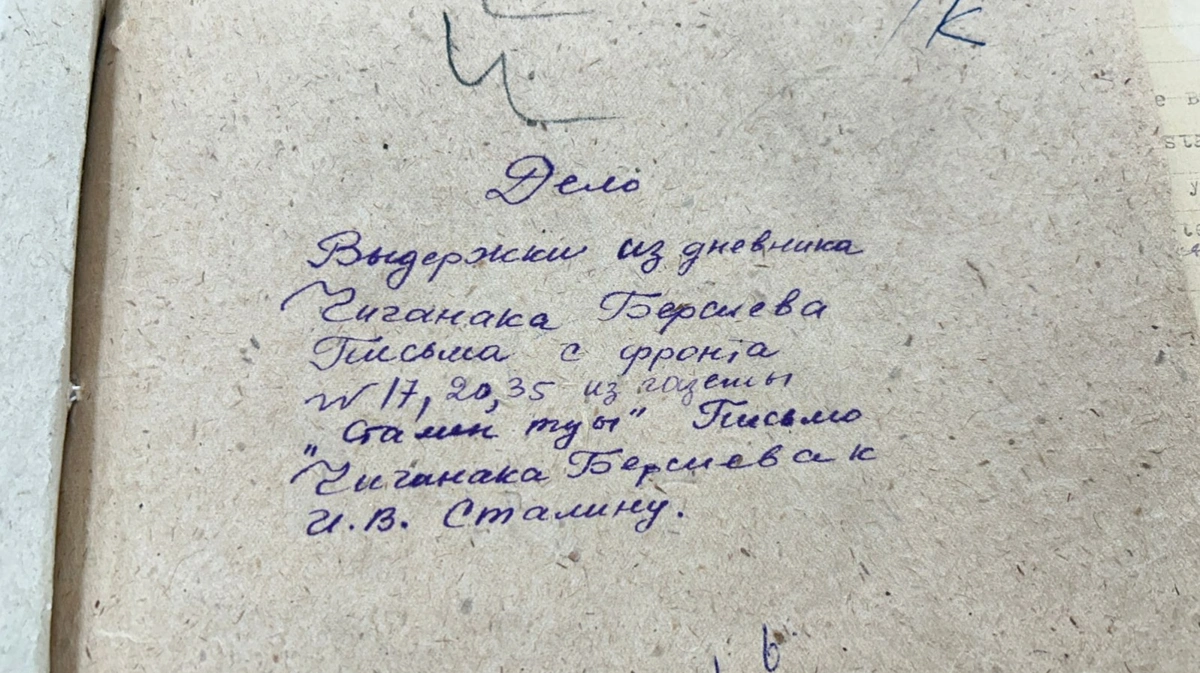 /к
Дело
Выдержки из дневника
Чиганака Берсиева
Письма с фронта
№ 17, 20, 35 из газеты
"Сталин туы" Письмо
Чиганака Берсиева к
И.В. Сталину.